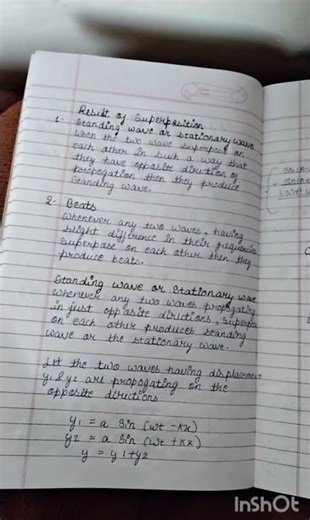 Result of Superposition
1. Standing wave or stationary wave
When the two wave superpose on
each other in such a way that
they have opposite direction of
propogation then they produce
standing wave.
2. Beats
Whenever any two waves, having
slight difference in their frequencies
superpose on each other then they
produce beats.
Standing wave or Stationary wave
Whenever any two waves propagating
in just opposite directions, superpose
on each other produces standing
wave or the stationary wave.
Let the two waves having displacement
y1 & y2 are propogating on the
opposite directions
y1 = a sin (wt - kx)
y2 = a sin (wt + kx)
y = y1+y2
InShOt